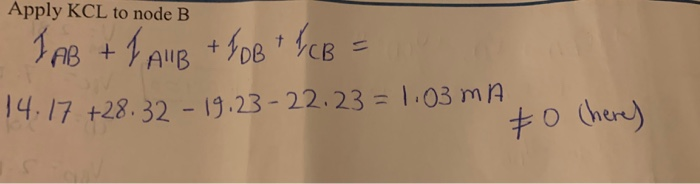 Apply KCL to node B
I_AB + I_A11B + I_DB + I_CB =
14.17 + 28.32 - 19.23 - 22.23 = 1.03 mA
≠ 0 (here)